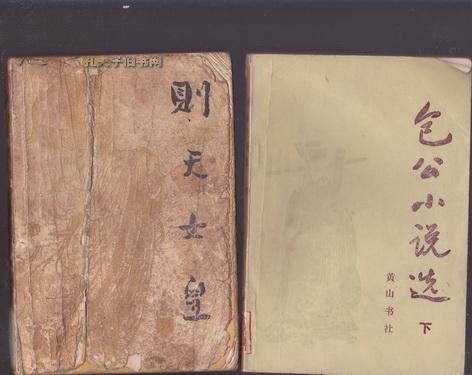 孔夫子旧书网
則天士皇
包公小说选
下
黄山书社